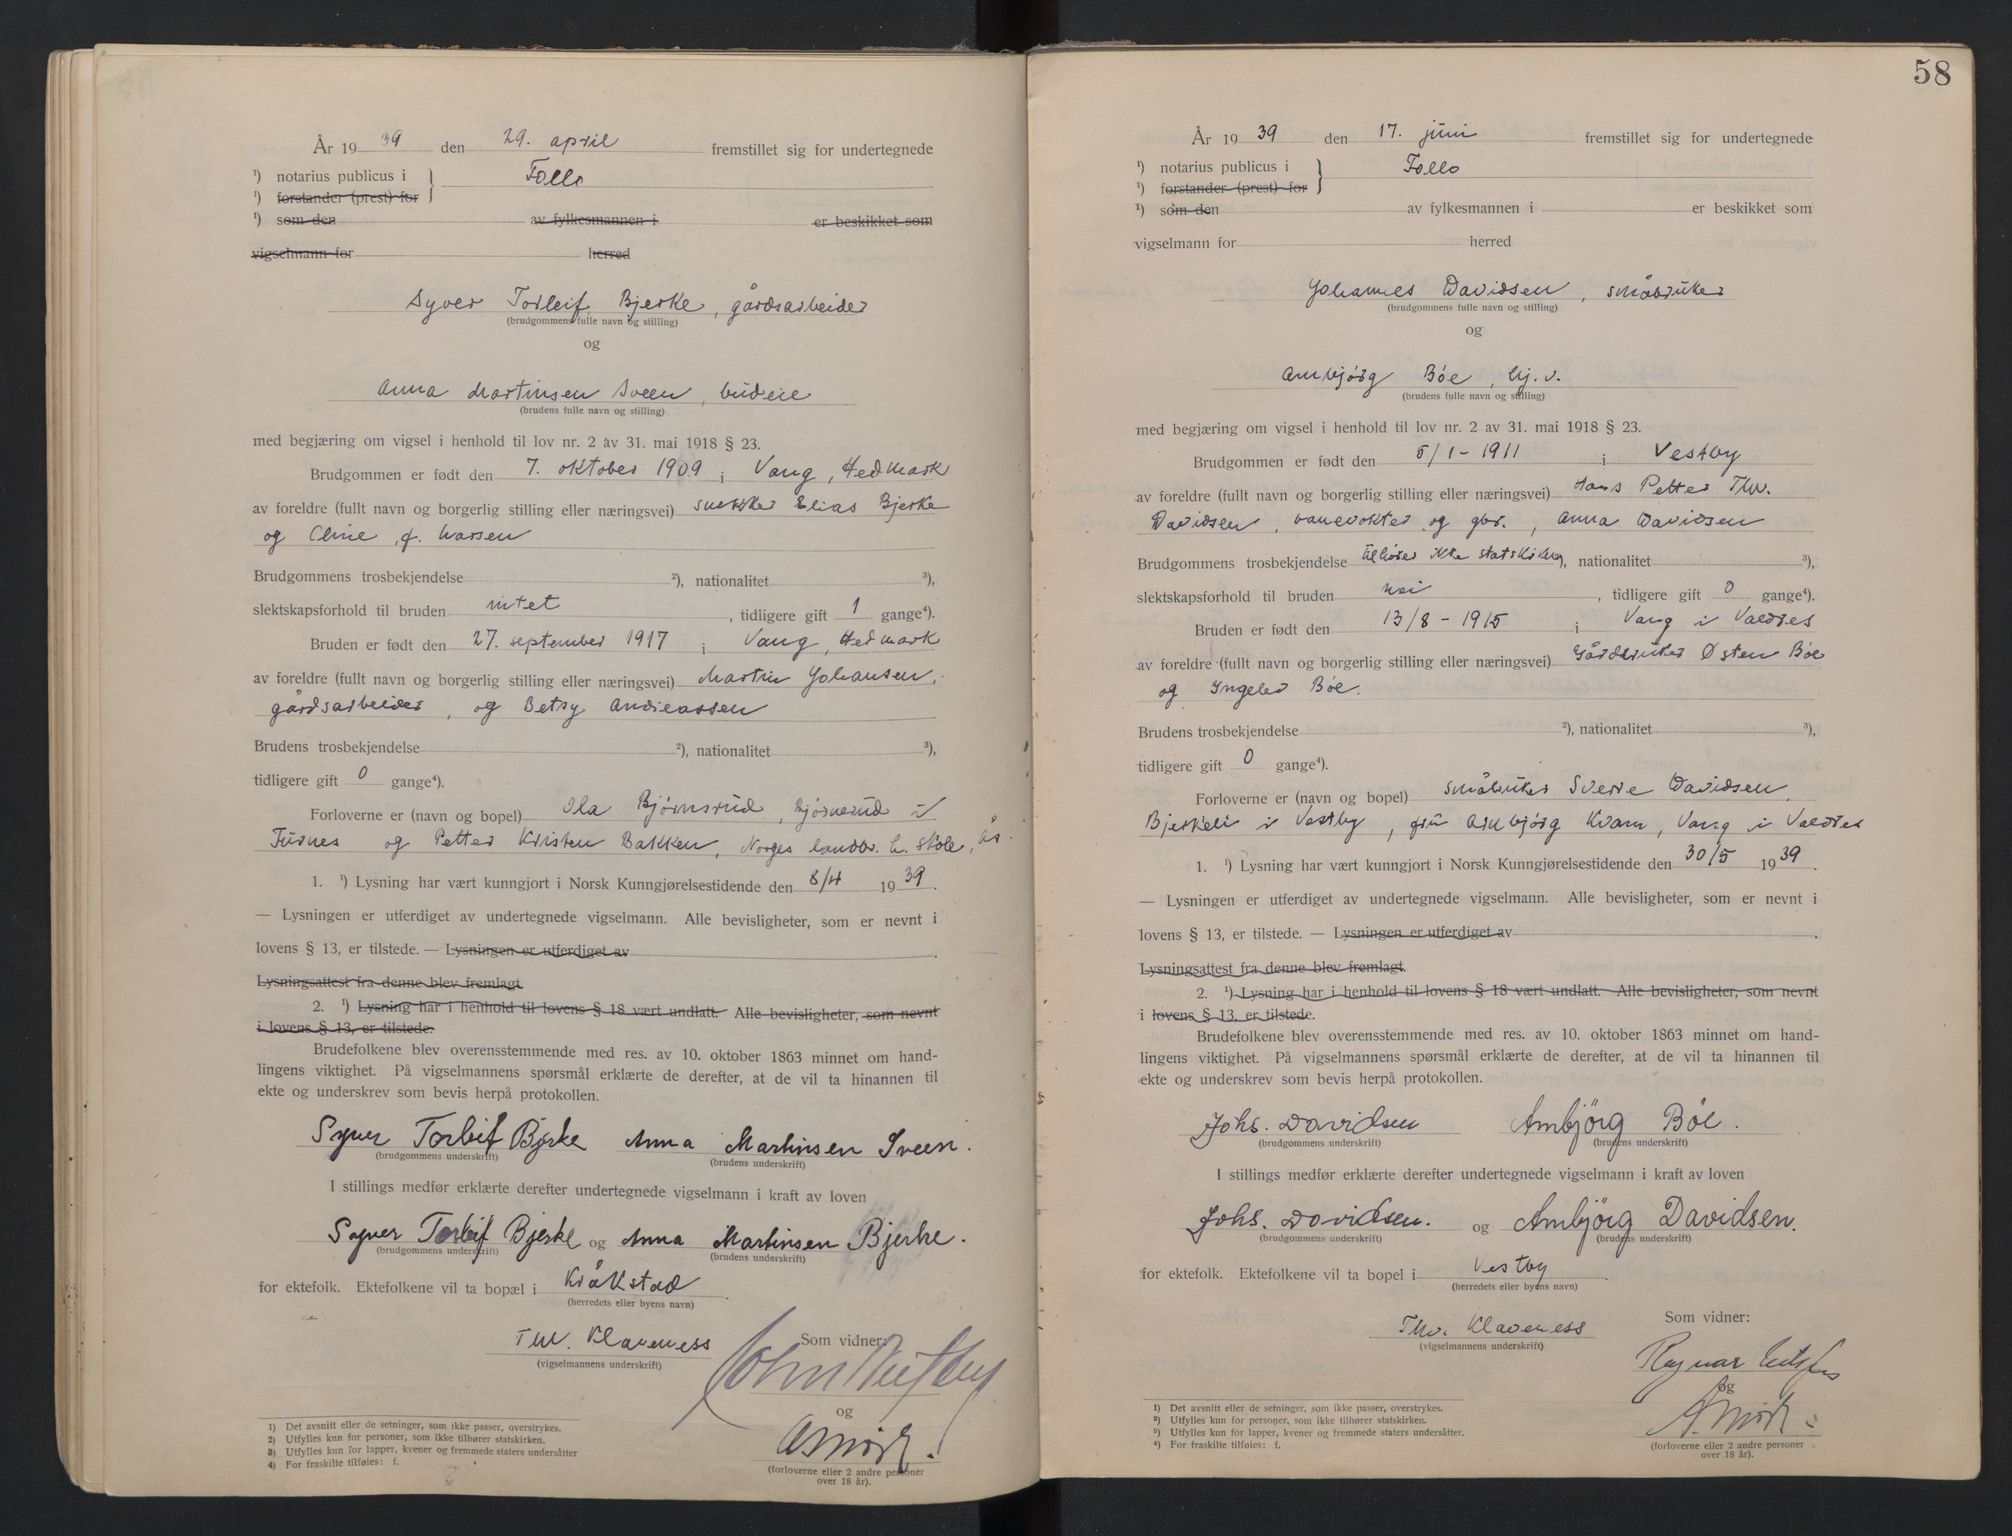 År 19 39 den 29. april fremstillet sig for undertegnede
¹) notarius publicus i } Follo
¹) forstander (prest) for
¹) som den av fylkesmannen i er beskikket som
vigselmann for herred
Syver Torleif Bjerke, gårdsarbeider
(brudgommens fulle navn og stilling)
og
Anna Martinsen Sveen, budeie
(brudens fulle navn og stilling)
med begjæring om vigsel i henhold til lov nr. 2 av 31. mai 1918 § 23.
Brudgommen er født den 7. oktober 1909 i Vang, Hedmark
av foreldre (fullt navn og borgerlig stilling eller næringsvei) snekker Elias Bjerke
og Oline, f. Larsen
Brudgommens trosbekjendelse ²), nationalitet ³),
slektskapsforhold til bruden intet, tidligere gift 1 gange⁴).
Bruden er født den 27. september 1917 i Vang, Hedmark
av foreldre (fullt navn og borgerlig stilling eller næringsvei) Martin Johansen,
gårdsarbeider, og Betsy Andreassen
Brudens trosbekjendelse ²), nationalitet ³),
tidligere gift 0 gange⁴).
Forloverne er (navn og bopel) Ola Bjørnsrud, Bjørnerud i
Furnes og Petter Kristen Bakken, Norges landbr. h. skole, Ås.
1. ¹) Lysning har vært kunngjort i Norsk Kunngjørelsestidende den 8/4 19 39.
— Lysningen er utferdiget av undertegnede vigselmann. Alle bevisligheter, som er nevnt i
lovens § 13, er tilstede. — Lysningen er utferdiget av
Lysningsattest fra denne blev fremlagt
2. ¹) Lysning har i henhold til lovens § 18 vært undlatt. Alle bevisligheter, som nevnt
i lovens § 13, er tilstede.
Brudefolkene blev overensstemmende med res. av 10. oktober 1863 minnet om hand-
lingens viktighet. På vigselmannens spørsmål erklærte de derefter, at de vil ta hinannen til
ekte og underskrev som bevis herpå protokollen.
Syver Torleif Bjerke Anna Martinsen Sveen.
(brudgommens underskrift) (brudens underskrift)
I stillings medfør erklærte derefter undertegnede vigselmann i kraft av loven
Syver Torleif Bjerke og Anna Martinsen Bjerke.
(brudgommens underskrift) (brudens underskrift)
for ektefolk. Ektefolkene vil ta bopæl i Kråkstad
(herredets eller byens navn)
Thv. Klaveness Som vidner:
(vigselmannens underskrift)
John
og
A Mørk.
(forloverne eller 2 andre personer
over 18 år).
1) Det avsnitt eller de setninger, som ikke passer, overstrykes.
2) Utfylles kun for personer, som ikke tilhører statskirken.
3) Utfylles kun for lapper, kvener og fremmede staters undersåtter
4) For fraskilte tilføies: f.
58
År 19 39 den 17. juni fremstillet sig for undertegnede
¹) notarius publicus i } Follo
¹) forstander (prest) for
¹) som den av fylkesmannen i er beskikket som
vigselmann for herred
Johannes Davidsen, småbruker
(brudgommens fulle navn og stilling)
og
Ambjørg Bøe, hj. v.
(brudens fulle navn og stilling)
med begjæring om vigsel i henhold til lov nr. 2 av 31. mai 1918 § 23.
Brudgommen er født den 5/1 - 1911 i Vestby
av foreldre (fullt navn og borgerlig stilling eller næringsvei) Hans Petter Thv.
Davidsen, banevokter og gbr., Anna Davidsen
Brudgommens trosbekjendelse tilhører ikke statskirken ), nationalitet ³),
slektskapsforhold til bruden nei, tidligere gift 0 gange⁴).
Bruden er født den 13/8 - 1915 i Vang i Valdres
av foreldre (fullt navn og borgerlig stilling eller næringsvei) Gårdbruker Østen Bøe
og Ingelev Bøe.
Brudens trosbekjendelse ²), nationalitet ³),
tidligere gift 0 gange⁴).
Forloverne er (navn og bopel) småbruker Sverre Davidsen,
Bjerkeli i Vestby, fru Ambjørg Kvam, Vang i Valdres
1. ¹) Lysning har vært kunngjort i Norsk Kunngjørelsestidende den 30/5 19 39.
— Lysningen er utferdiget av undertegnede vigselmann. Alle bevisligheter, som er nevnt i
lovens § 13, er tilstede. — Lysningen er utferdiget av
Lysningsattest fra denne blev fremlagt.
2. ¹) Lysning har i henhold til lovens § 18 vært undlatt. Alle bevisligheter, som nevnt
i lovens § 13, er tilstede.
Brudefolkene blev overensstemmende med res. av 10. oktober 1863 minnet om hand-
lingens viktighet. På vigselmannens spørsmål erklærte de derefter, at de vil ta hinannen til
ekte og underskrev som bevis herpå protokollen.
Johs. Davidsen Ambjörg Böe.
(brudgommens underskrift) (brudens underskrift)
I stillings medfør erklærte derefter undertegnede vigselmann i kraft av loven
Johs. Davidsen. og Ambjörg Davidsen.
(brudgommens underskrift) (brudens underskrift)
for ektefolk. Ektefolkene vil ta bopel i Vestby.
(herredets eller byens navn)
Thv. Klaveness Som vidner:
(vigselmannens underskrift)
Ragnar
og
A. Mørk.
(forloverne eller 2 andre personer
over 18 år).
¹) Det avsnitt eller de setninger, som ikke passer, overstrykes.
²) Utfylles kun for personer, som ikke tilhører statskirken.
³) Utfylles kun for lapper, kvener og fremmede staters undersåtter.
⁴) For fraskilte tilføies: f.